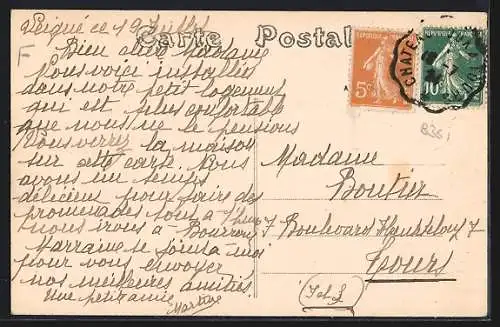 Carte Postale
Ceigné ce 19 Juillet
Bien chère Madame
Vous voici installées
dans notre petit logement
qui est plus confortable
que nous ne le pensions
Vous verrez la maison
sur cette carte. Nous
avons un temps
délicieux pour faire des
promenades tout à l'heure
nous irons à Bourrou
Marraine se joint à moi
pour vous envoyer
nos meilleures amitiés
Une petite amie
Martine
Madame
Boutier
7 Boulevard Heurteloup 7
Tours
(I et L)
5c
10c
CHATE
836
F